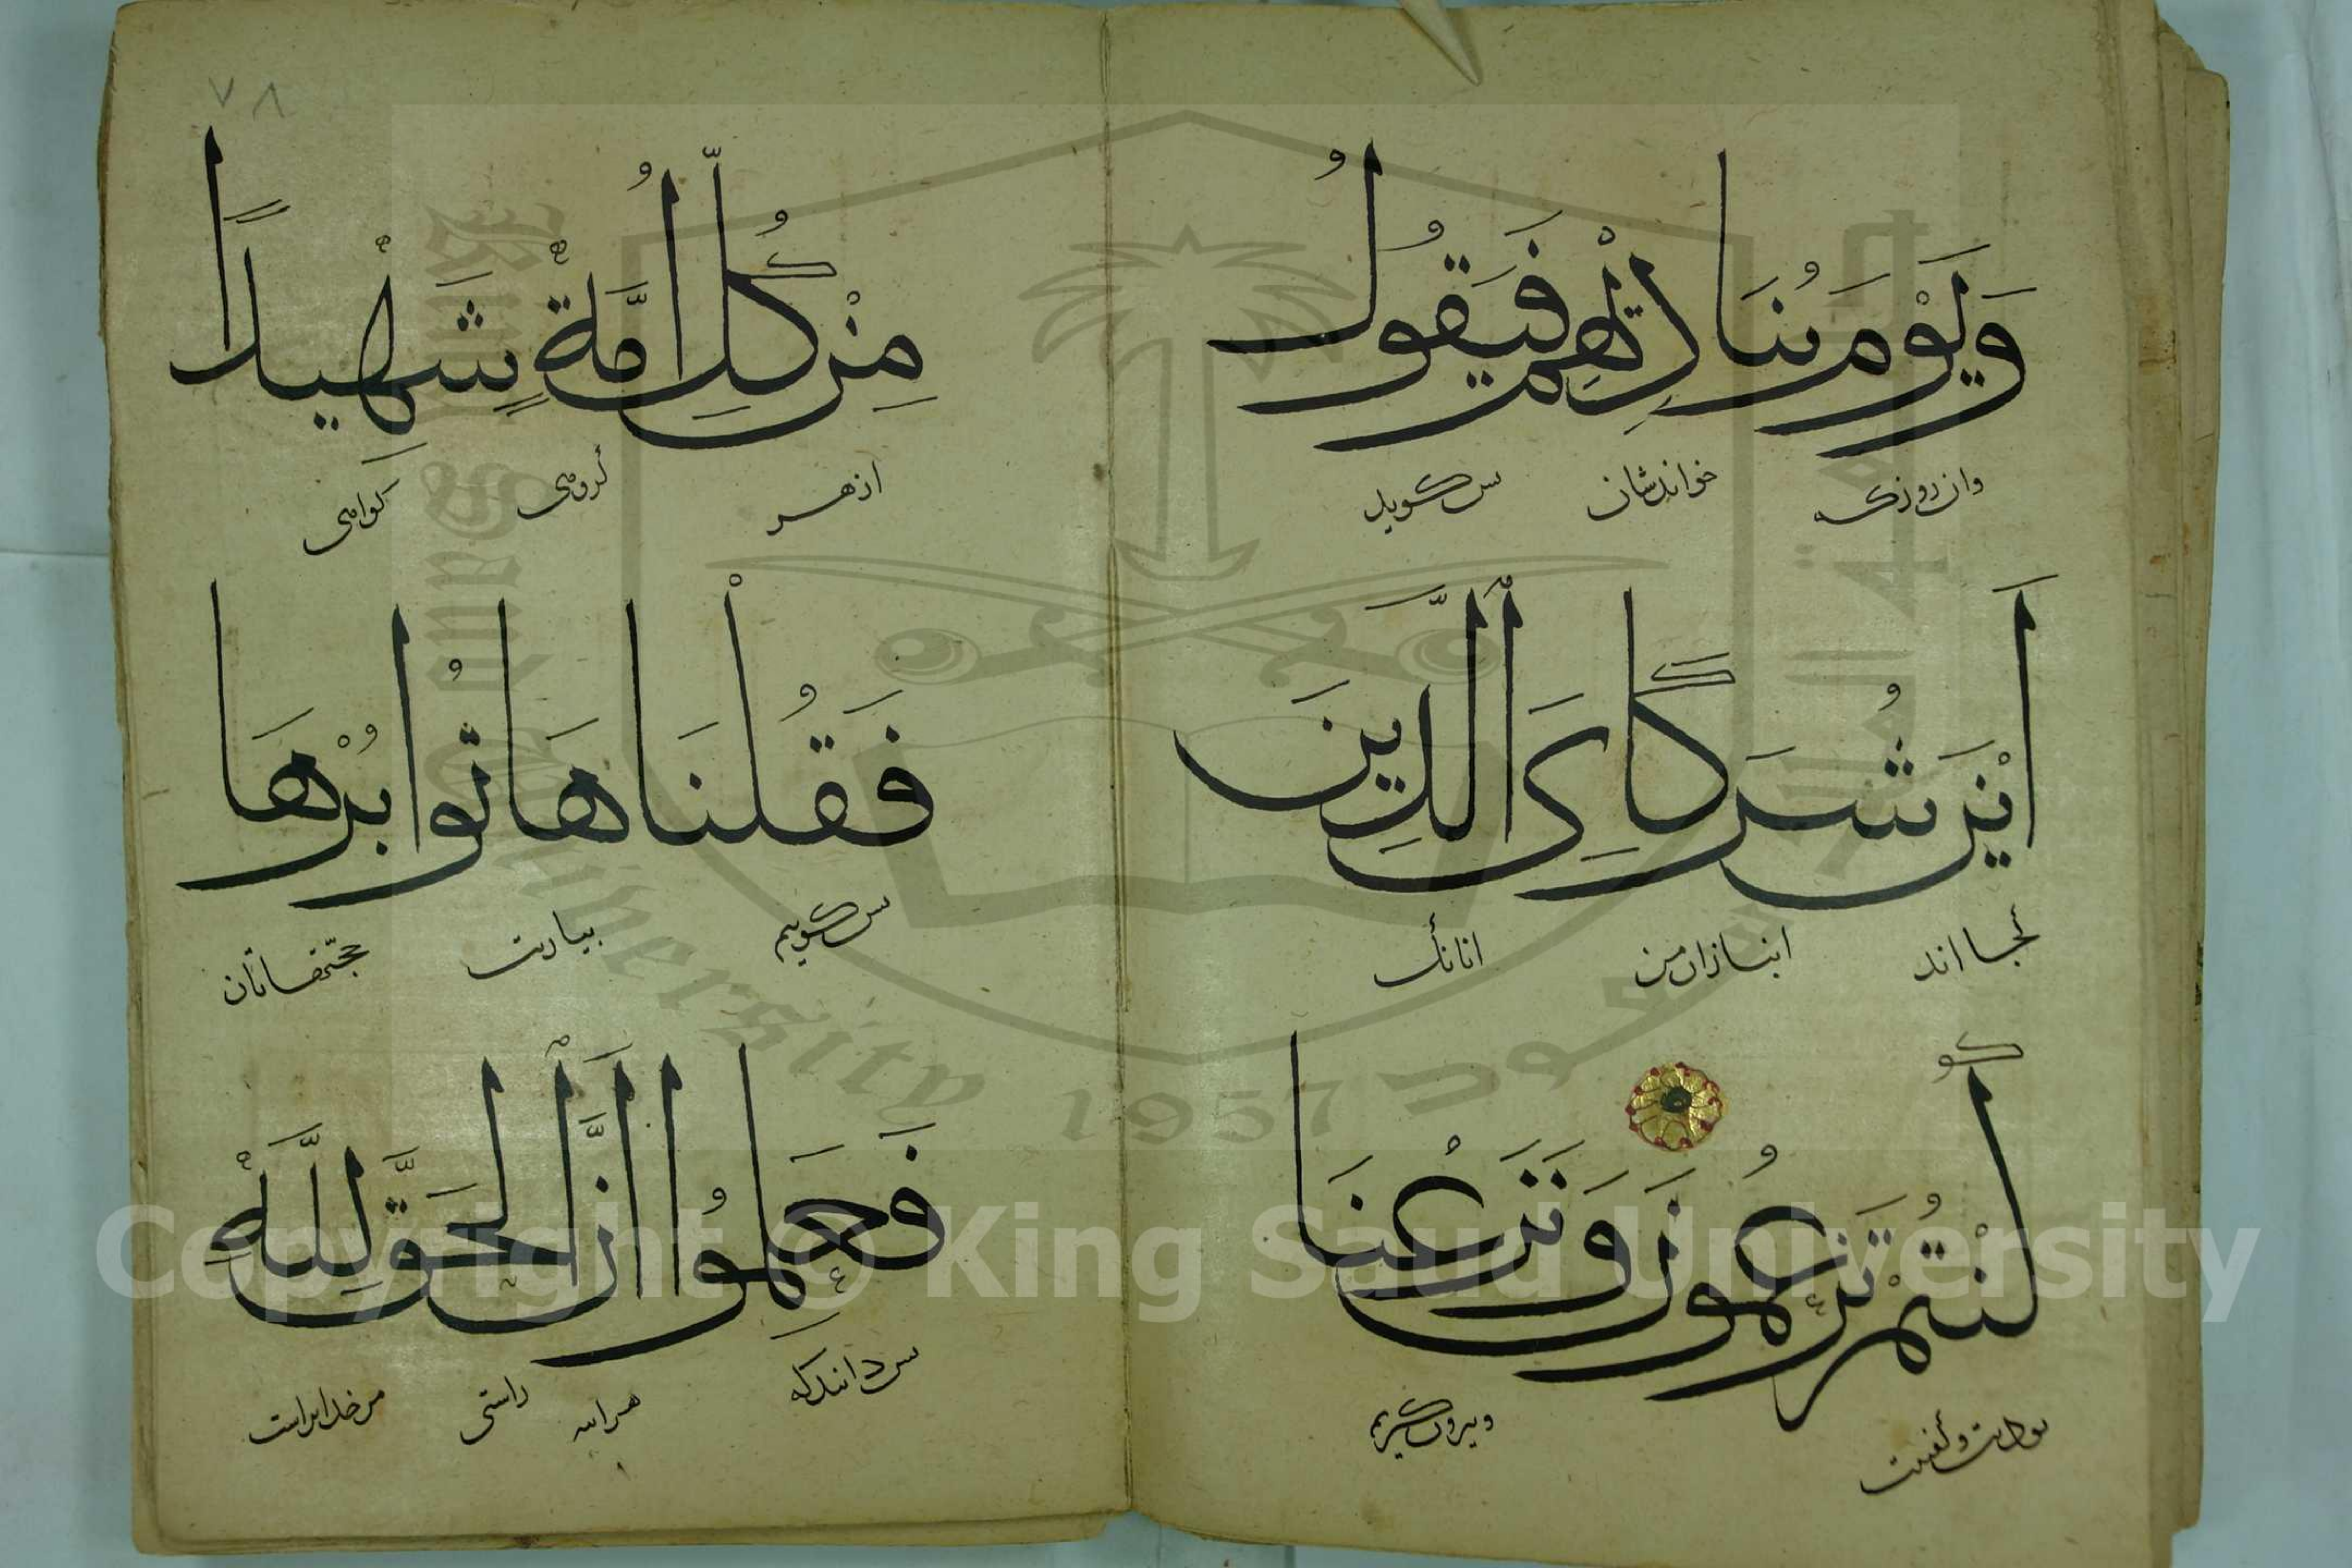 وَيَوْمَ يُنَادِيهِمْ فَيَقُولُ
وان روزکه خواندشان پس گوید
أَيْنَ شُرَكَاىَِٔ الَّذِينَ
کجا اند انبازان من انانک
كُنْتُمْ تَزْعُمُونَ وَنَزَعْنَا
وبیرون کنیم
٧٨
مِنْ كُلِّ أُمَّةٍ شَهِيدًا
از هر کروهی کواهی
فَقُلْنَا هَاتُوا بُرْهَا
پس گوییم بیاریت حجتهاتان
فَعَلِمُوا أَنَّ الْحَقَّ لِلَّهِ
پس دانند که راستی مر خدایراست
Copyright © King Saud University
1957